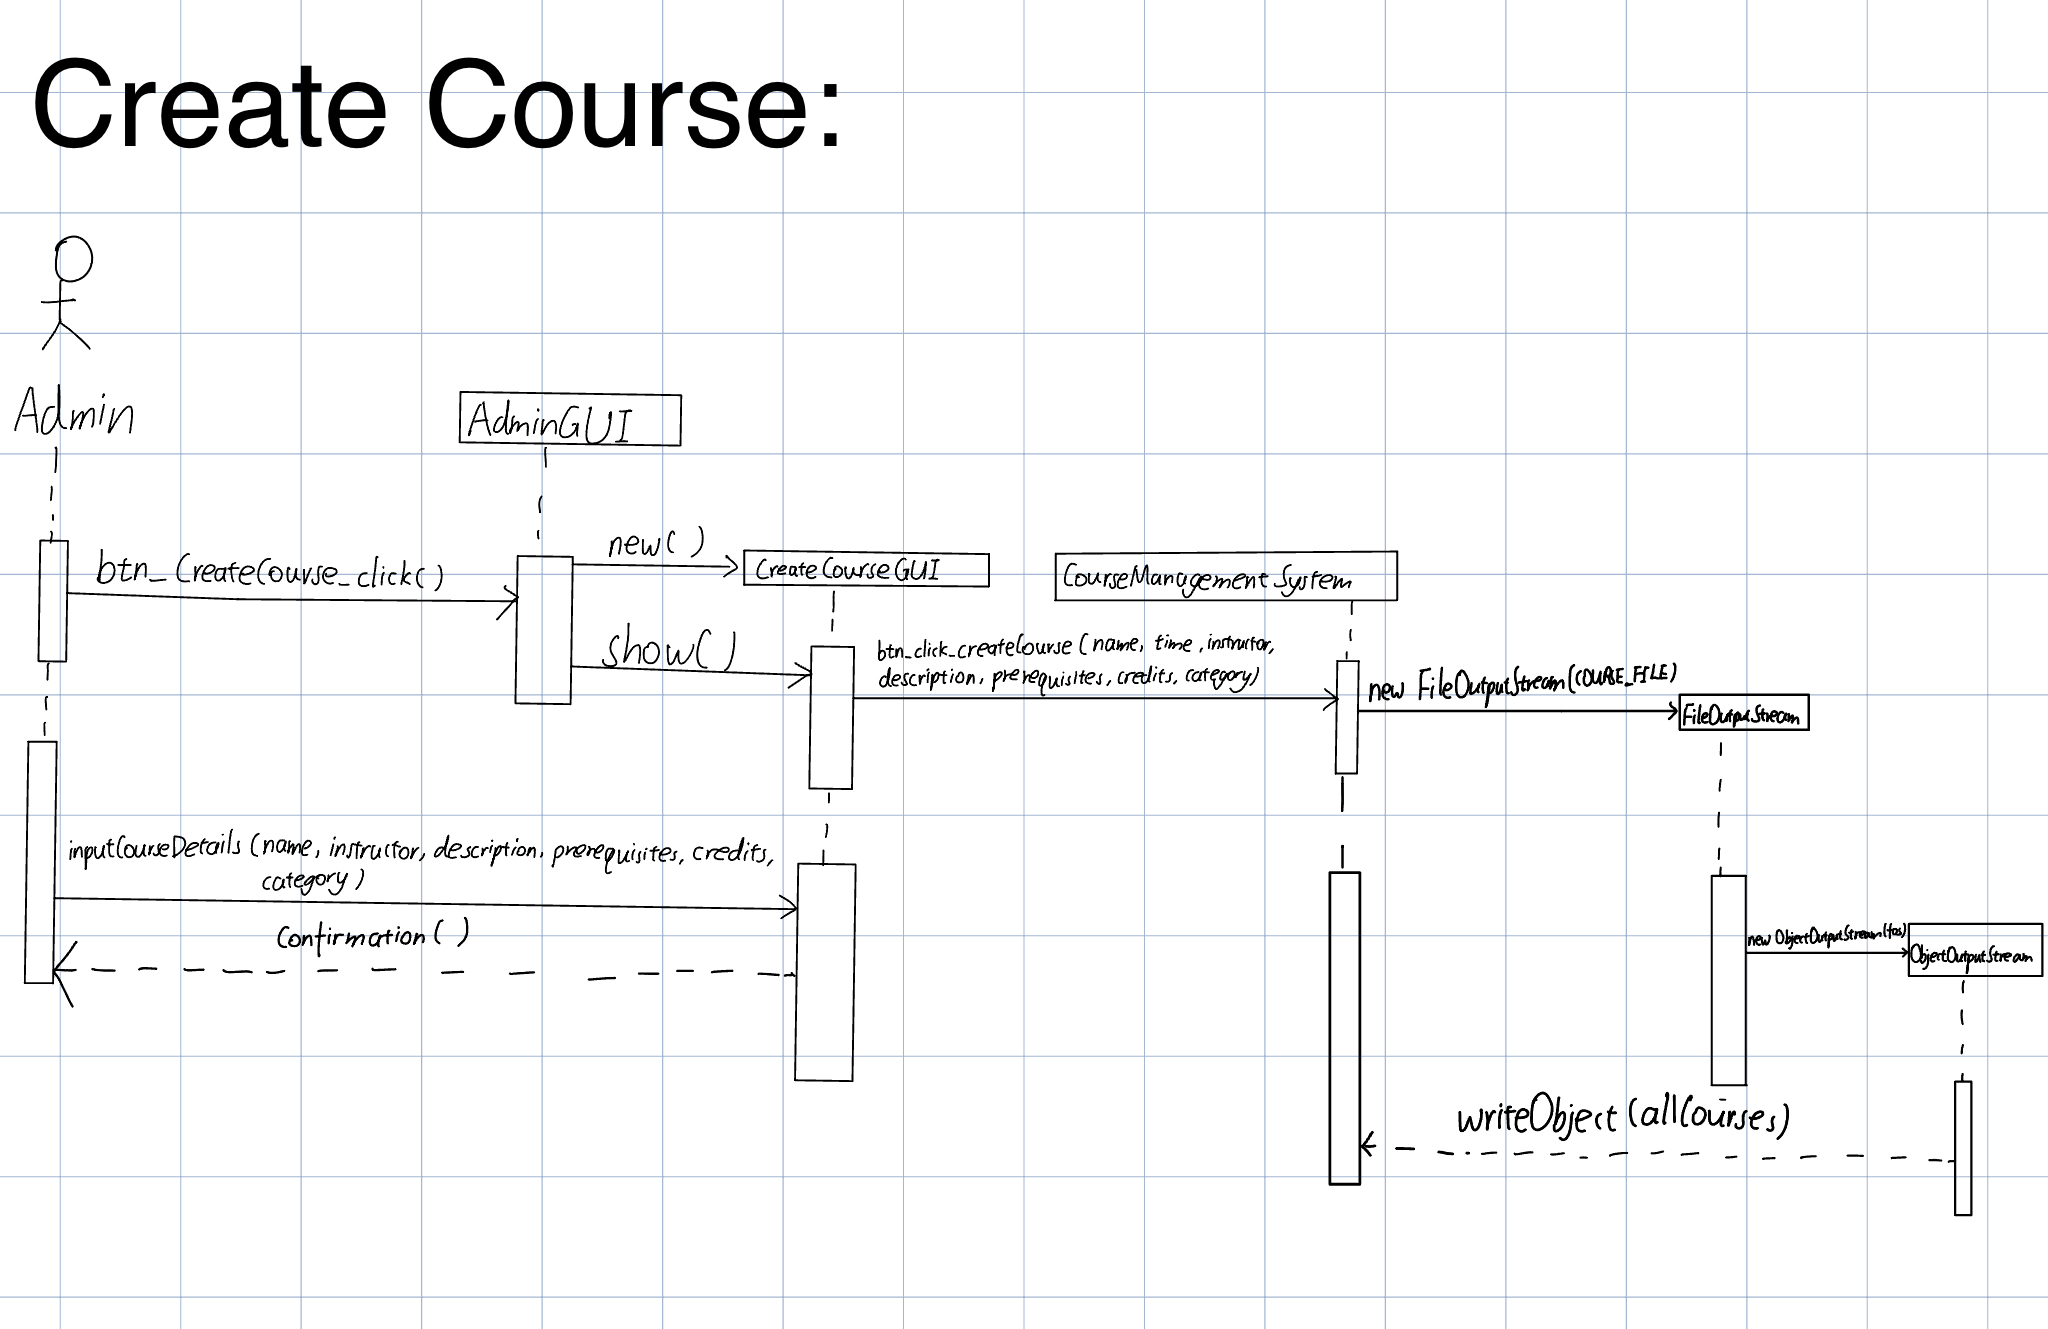 Create Course:
Admin
AdminGUI
btn_CreateCourse_click()
new( )
CreateCourseGUI
CourseManagement System
show( )
btn_click_createCourse (name, time, instructor,
description, prerequisites, credits, category)
new FileOutputStream(COURSE_FILE)
FileOutputStream
inputCourseDetails (name, instructor, description, prerequisites, credits,
category )
Confirmation( )
new ObjectOutputStream(fos)
ObjectOutputStream
writeObject (allCourses)